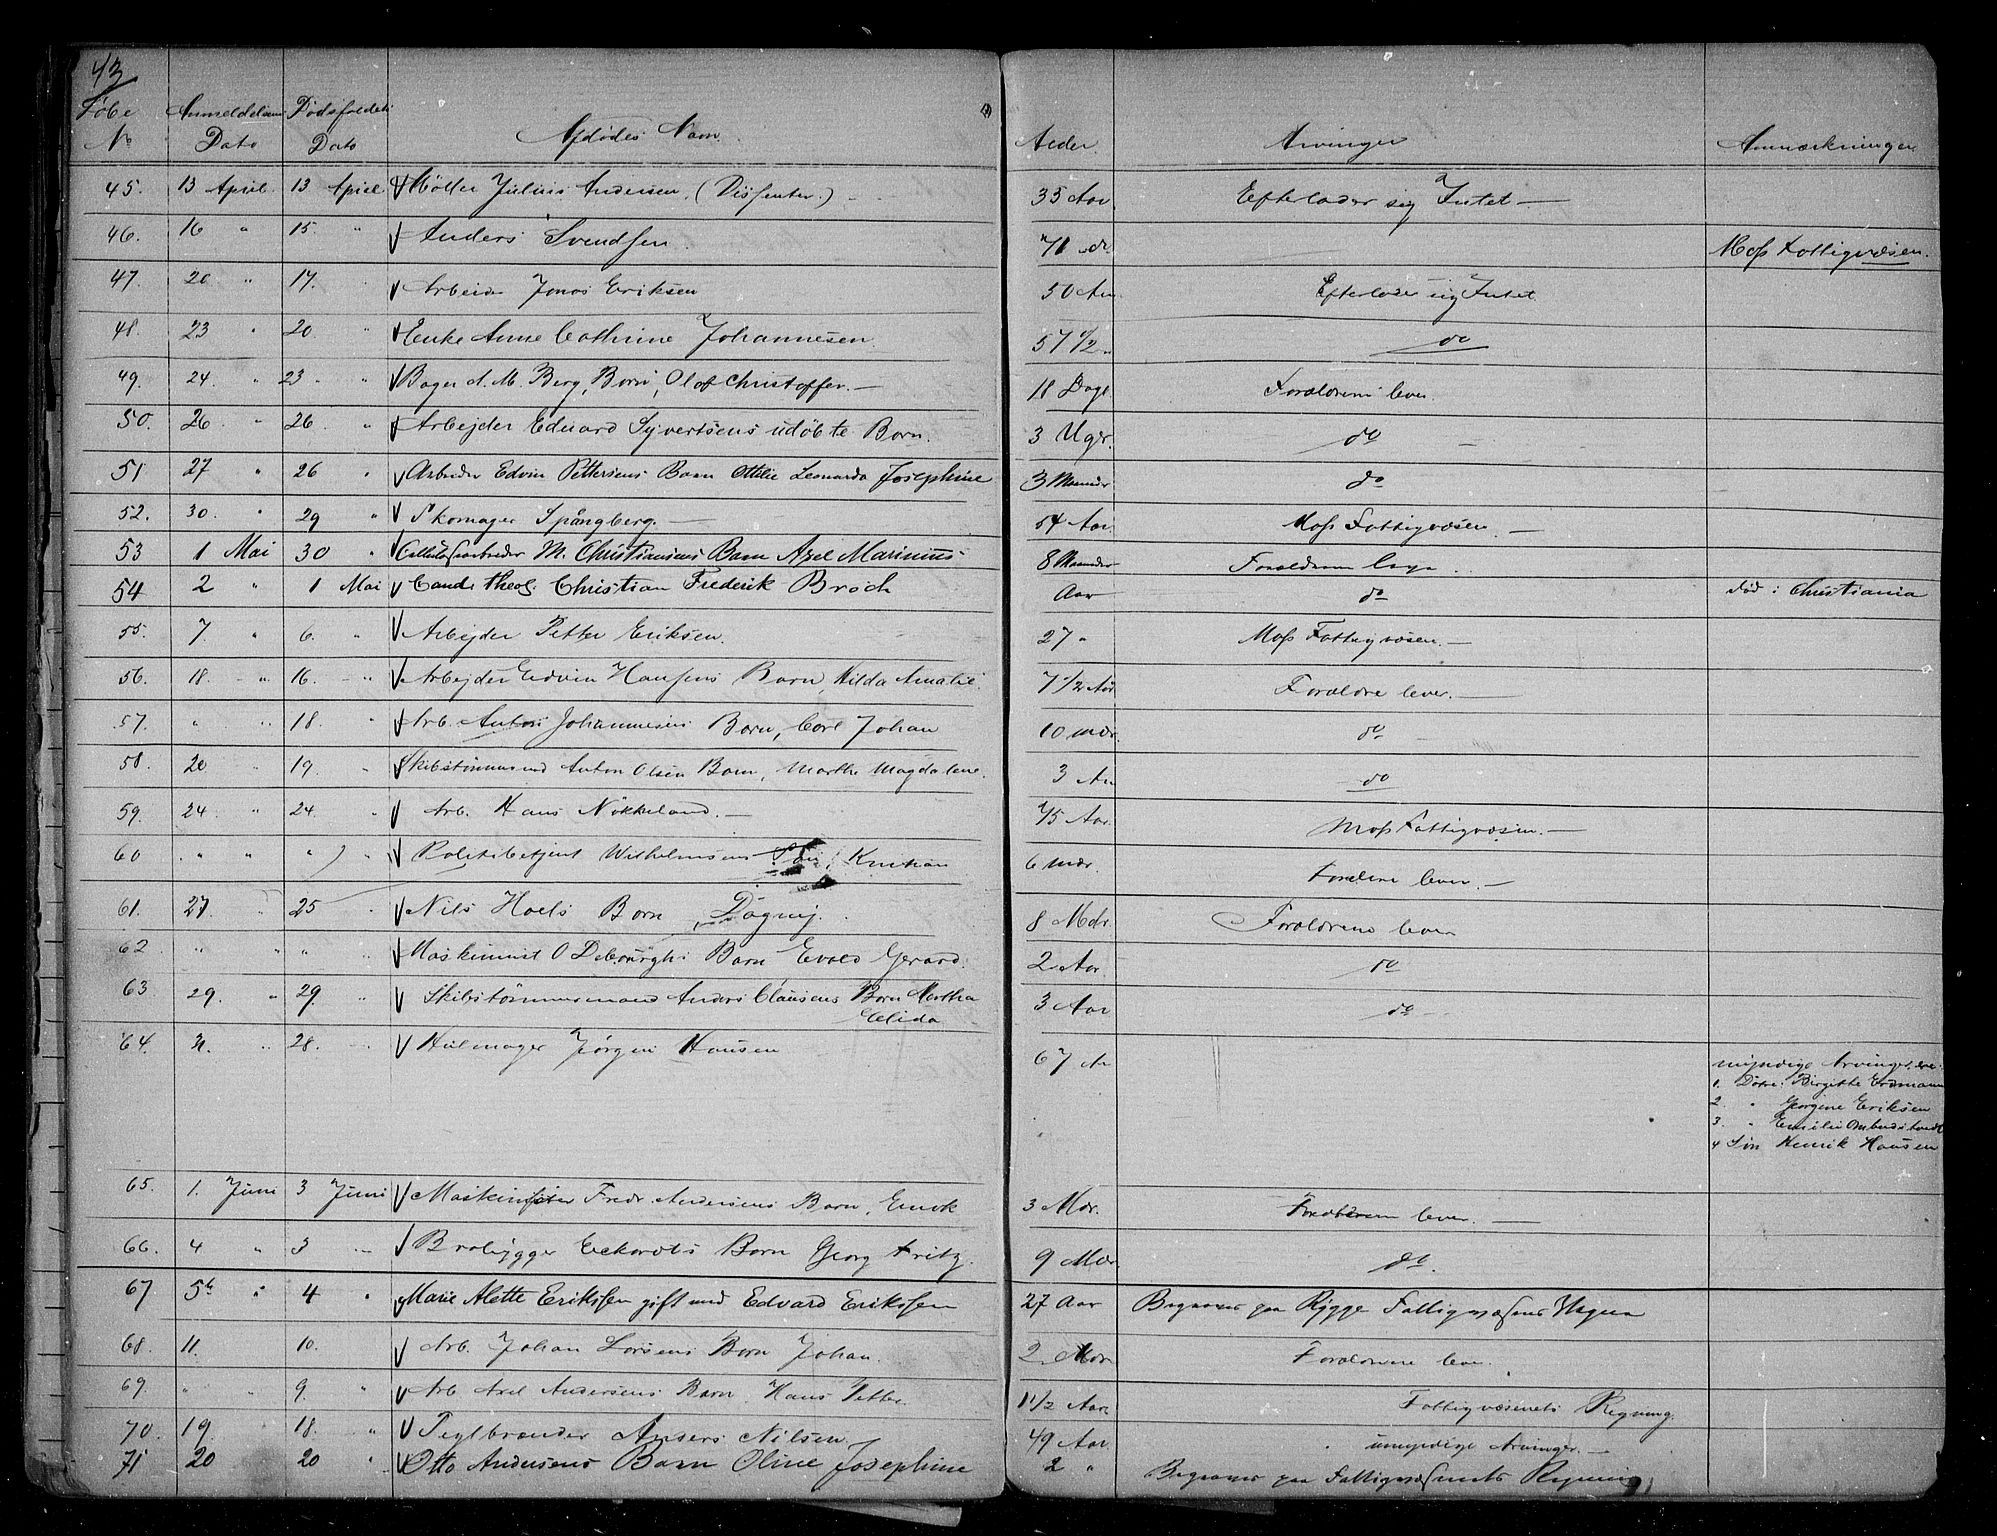 43
Løbe No Anmeldelsens Dato Dødsfaldets Dato Afdødes Navn Alder Arvinger Anmærkninger
45. 13 April. 13 April Møller Julius Andersen, (Dissenter.) 35 Aar Efterlader sig Intet —
46. 16 " 15. " Anders Svendsen. 71 Moss Fattigvæsen.
47. 20 " 17. Arbeider Jonas Eriksen 50 Aar Efterlader sig Intet.
48. 23 " 20. " Enke Anne Cathrine Johannesen. 57 1/2 " do
49. 24. " 23 " Bager A. M. Berg, Barn, Olaf Christoffer. — 18 Dage Forældrene lever.
50. 26 " 26. " Arbejder Edvard Syvertsens udøbte Barn. 3 Uger. do
51 27 " 26 " Arbeider Edvin Pettersens Barn Ottilie Leonarda Josephine 3 Maaneder do
52. 30. " 29 " Skomager Spångberg. — 54 Aar Moss Fattigvæsen —
53 1 Mai 30 " Cellulosearbeider M. Christiansens Barn Axel Marinius 8 Maaneder Forældrene leve.
54 2 " 1 Mai Cand. theol. Christian Frederik Broch Aar do Død i Christiania
55. 7 " 6. " Arbejder Petter Eriksen. 27 " Moss Fattigvæsen. —
56. 18. " 16. " Arbejder Edvin Hansens Barn, Hilda Amalie. 7 1/2 Aar Forældre lever. —
57. " " 18. " Arb. Anton Johannesens Barn, Carl Johan 10 mdr. do
58. 20 " 19. " Skibstømmermand Anton Olsen Barn, Marthe Magdalene. 3 Aar do
59. 24 " 24. " Arb. Hans Nökkeland. — 75 Aar. Moss Fattigvæsen. —
60 " " " " Politibetjent Wilhelmsens Søn, Kristian 6 mdr. Forældrene lever. —
61. 27. " 25 " Nils Hoels Barn, Dagny. 8 Mdr. Forældrene lever
62 " " " " Maskinist O Debourghs Barn Evald Gerard. 2 Aar. do
63 29. " 29 " Skibstømmermand Anders Clausens Barn Martha Elida 3 Aar do
64. 31. " 28. " Hulmager Jørgen Hansen 67 Aar myndige Arvinger, ere
1. Datre. Birgitte Erdmann
2. " Georgine Eriksen
3. " Emilie
4 Søn Henrik Hansen
65. 1. Juni 3 Juni Maskinist Fredr. Andersens Barn, Einok 3 Mdr. Forældrene lever. —
66. 4 " 3 Brolægger Eckardts Barn Georg Fritz. 9 Mdr do.
67 5te " 4 " Marie Alette Erikssen gift med Edvard Erikssen 27 Aar Begraves paa Rygge Fattigvæsens Regning
68. 11. 10. Arb. Johan Larsens Barn Johan. 2 Mdr Forældrene lever.
69. " " 9. " Arb Axel Andersens Barn Hans Petter. 1 1/2 Aar Fattigvæsenets Regning.
70. 19. 18. " Teglbrænder Anders Nilsen — 49 Aar. umyndige Arvinger. —
71 20 20 " Otto Andersens Barn Oline Josephine 2 " Begraves paa Fattigvæsenets Regning